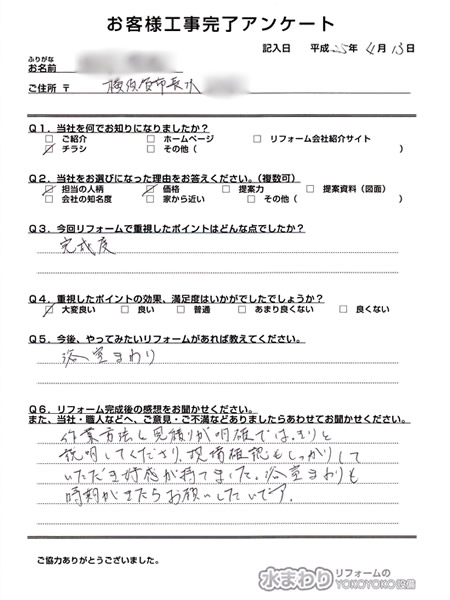 お客様工事完了アンケート
記入日 平成 25年 4月 13日
ふりがな
お名前
ご住所 〒 横須賀市長沢
Q1．当社を何でお知りになりましたか？
□ ご紹介 □ ホームページ □ リフォーム会社紹介サイト
☑ チラシ □ その他（ ）
Q2．当社をお選びになった理由をお答えください。（複数可）
☑ 担当の人柄 ☑ 価格 □ 提案力 □ 提案資料（図面）
□ 会社の知名度 □ 家から近い □ その他（ ）
Q3．今回リフォームで重視したポイントはどんな点でしたか？
完成度
Q4．重視したポイントの効果、満足度はいかがでしたでしょうか？
☑ 大変良い □ 良い □ 普通 □ あまり良くない □ 良くない
Q5．今後、やってみたいリフォームがあれば教えてください。
浴室まわり
Q6．リフォーム完成後の感想をお聞かせください。
また、当社・職人などへ、ご意見・ご不満などありましたらあわせてお聞かせください。
作業方法と見積りが明確ではっきりと
説明してくださり、現場確認もしっかりして
いただき好感が持てました。浴室まわりも
時期がきたらお願いしたいです。
ご協力ありがとうございました。
水まわりリフォームの
YOKOYOKO設備